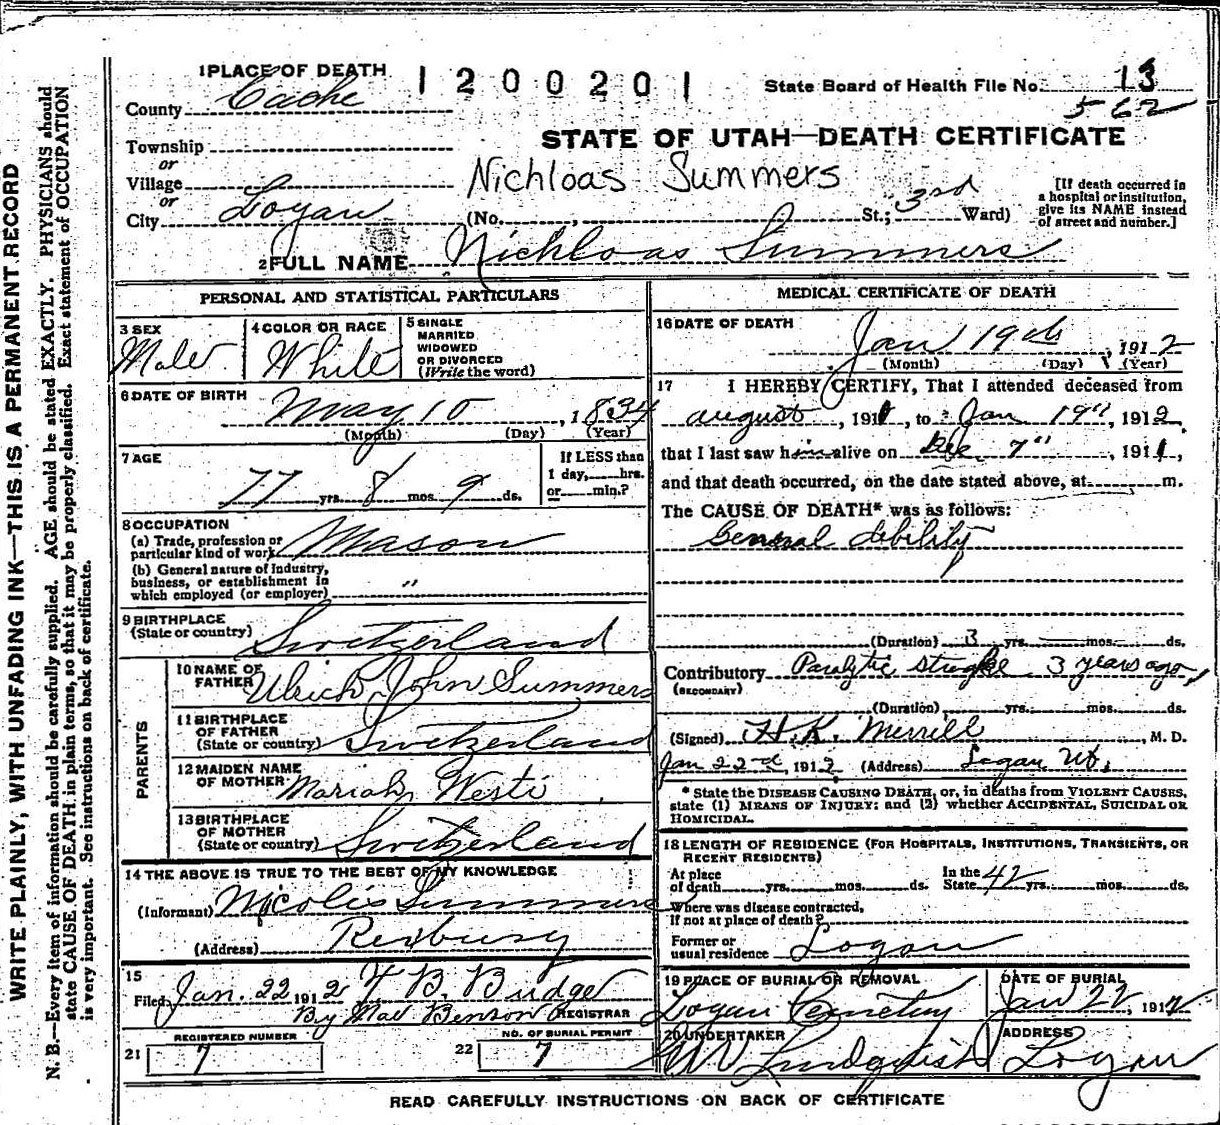 WRITE PLAINLY, WITH UNFADING INK—THIS IS A PERMANENT RECORD
N. B.—Every item of information should be carefully supplied. AGE should be stated EXACTLY. PHYSICIANS should
state CAUSE OF DEATH in plain terms, so that it may be properly classified. Exact statement of OCCUPATION
is very important. See instructions on back of certificate.
1 PLACE OF DEATH 1200201 State Board of Health File No. 13
County Cache 562
STATE OF UTAH—DEATH CERTIFICATE
Township
or
Village Nichloas Summers
or
City Logan (No. , St.; 3rd Ward)
[If death occurred in
a hospital or institution,
give its NAME instead
of street and number.]
2 FULL NAME Nichloas Summers
PERSONAL AND STATISTICAL PARTICULARS
3 SEX
Male
4 COLOR OR RACE
White
5 SINGLE
MARRIED
WIDOWED
OR DIVORCED
(Write the word)
6 DATE OF BIRTH
May 10, 1834
(Month) (Day) (Year)
7 AGE
77 yrs. 8 mos. 9 ds.
If LESS than
1 day, hrs.
or min.?
8 OCCUPATION
(a) Trade, profession or
particular kind of work Mason
(b) General nature of Industry,
business, or establishment in
which employed (or employer) "
9 BIRTHPLACE
(State or country) Switzerland
PARENTS
10 NAME OF
FATHER Ulrich John Summers
11 BIRTHPLACE
OF FATHER
(State or country) Switzerland
12 MAIDEN NAME
OF MOTHER Mariah Westi
13 BIRTHPLACE
OF MOTHER
(State or country) Switzerland
14 THE ABOVE IS TRUE TO THE BEST OF MY KNOWLEDGE
(Informant) Nicolis Summers
(Address) Rexburg
15
Filed Jan. 22 1912 F B. Budge
By Mae Benson REGISTRAR
REGISTERED NUMBER
21 7
NO. OF BURIAL PERMIT
22 7
MEDICAL CERTIFICATE OF DEATH
16 DATE OF DEATH
Jan 19th, 1912
(Month) (Day) (Year)
17 I HEREBY CERTIFY, That I attended deceased from
august, 1911, to Jan 19", 1912
that I last saw him alive on Dec 7", 1911,
and that death occurred, on the date stated above, at m.
The CAUSE OF DEATH* was as follows:
General debility
(Duration) 3 yrs. mos. ds.
Contributory Paralytic stroke 3 years ago
(SECONDARY)
(Duration) yrs. mos. ds.
(Signed) H. K. Merrill, M. D.
Jan 22nd, 1912 (Address) Logan Ut.
* State the DISEASE CAUSING DEATH, or, in deaths from VIOLENT CAUSES,
state (1) MEANS OF INJURY; and (2) whether ACCIDENTAL, SUICIDAL OR
HOMICIDAL.
18 LENGTH OF RESIDENCE (FOR HOSPITALS, INSTITUTIONS, TRANSIENTS, OR
RECENT RESIDENTS)
At place
of death yrs. mos. ds.
In the
State 42 yrs. mos. ds.
Where was disease contracted,
if not at place of death?
Former or
usual residence Logan
19 PLACE OF BURIAL OR REMOVAL
Logan Cemetery
DATE OF BURIAL
Jan 22, 1912
20 UNDERTAKER
Lundquist
ADDRESS
Logan
READ CAREFULLY INSTRUCTIONS ON BACK OF CERTIFICATE